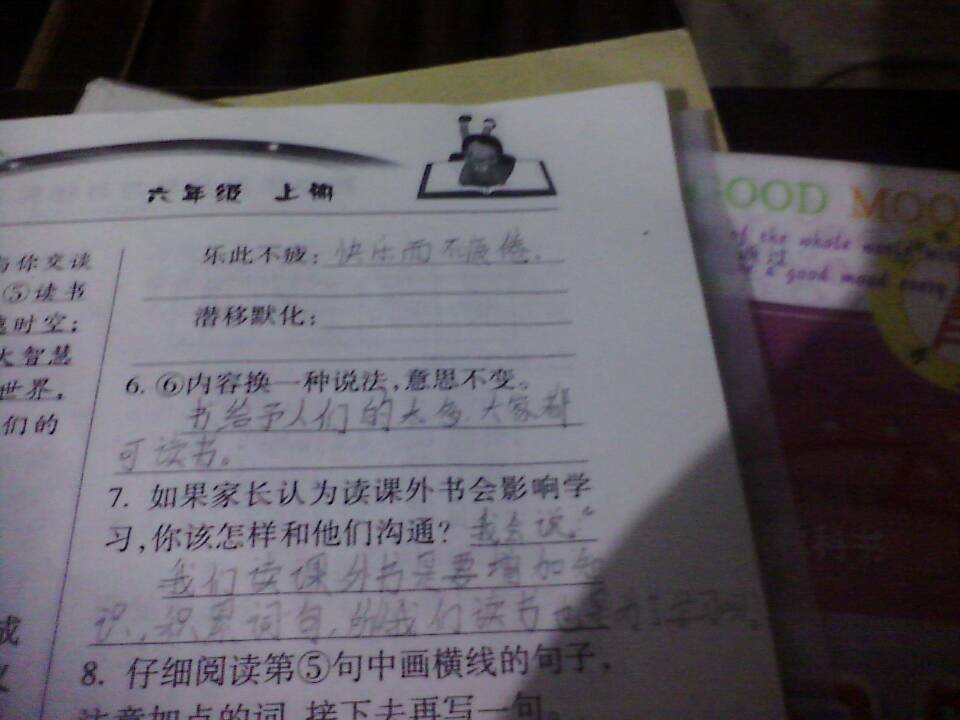 六年级 上册
与你交读
⑤读书
时空；
大智慧
世界，
们的
乐此不疲：快乐而不疲倦.
潜移默化：
6. ⑥内容换一种说法，意思不变。
书给予人们的太多.大家都
可读书。
7. 如果家长认为读课外书会影响学
习，你该怎样和他们沟通？我会说：“
我们读课外书是要增加知
识，积累词句，所以我们读书也是为了学习
8. 仔细阅读第⑤句中画横线的句子，
注意加点的词，接下去再写一句。
GOOD MOO
of the whole world
a good mood every
科书